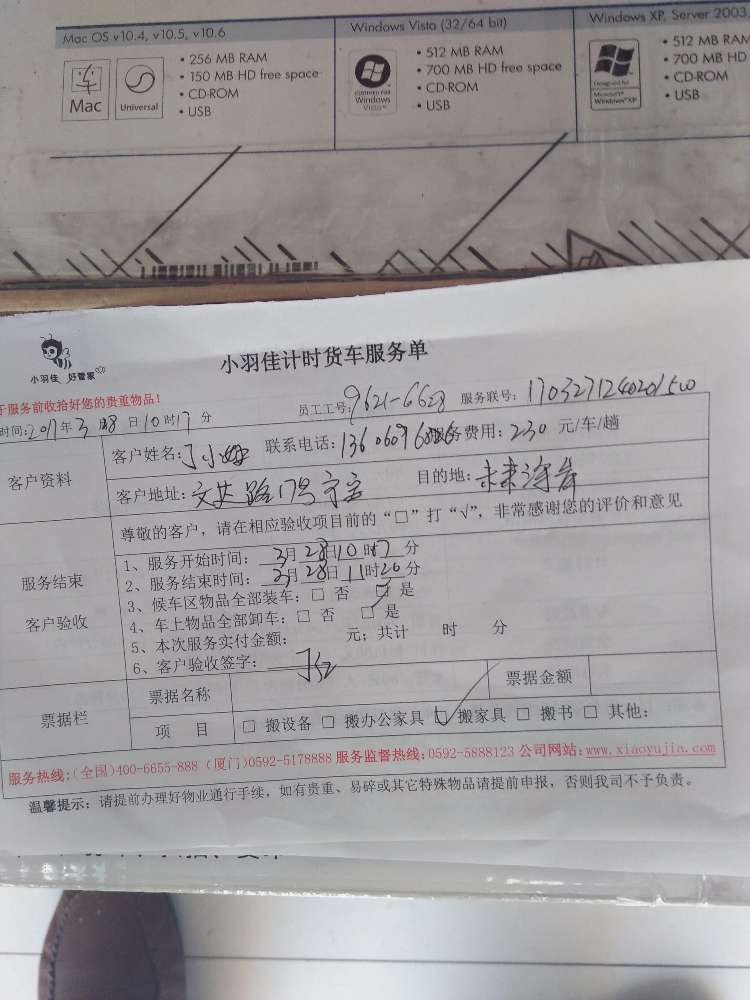 Mac OS v10.4, v10.5, v10.6
Mac
Universal
• 256 MB RAM
• 150 MB HD free space
• CD-ROM
• USB
Windows Vista (32/64 bit)
Windows Vista
• 512 MB RAM
• 700 MB HD free space
• CD-ROM
• USB
Windows XP, Server 2003
Designed for
Microsoft
Windows XP
• 512 MB RAM
• 700 MB HD
• CD-ROM
• USB
小羽佳 好管家
小羽佳计时货车服务单
于服务前收拾好您的贵重物品!
时间:2017年3月28日10时17分 员工工号:9621-6628 服务联号:1703271240201500
客户资料
客户姓名:丁小姐 联系电话:136 服务费用:230 元/车/趟
客户地址:文 路17号 目的地:未来海岸
尊敬的客户,请在相应验收项目前的“□”打“√”,非常感谢您的评价和意见
服务结束
客户验收
1、服务开始时间: 3月28日10时17分
2、服务结束时间: 3月28日11时20分
3、候车区物品全部装车:□ 否 □ 是
4、车上物品全部卸车:□ 否 □ 是
5、本次服务实付金额: 元;共计 时 分
6、客户验收签字:
票据栏
票据名称 票据金额
项 目 □ 搬设备 □ 搬办公家具 ☑ 搬家具 □ 搬书 □ 其他:
服务热线:(全国)400-6655-888(厦门)0592-5178888 服务监督热线:0592-5888123 公司网站:www.xiaoyujia.com
温馨提示:请提前办理好物业通行手续,如有贵重、易碎或其它特殊物品请提前申报,否则我司不予负责。